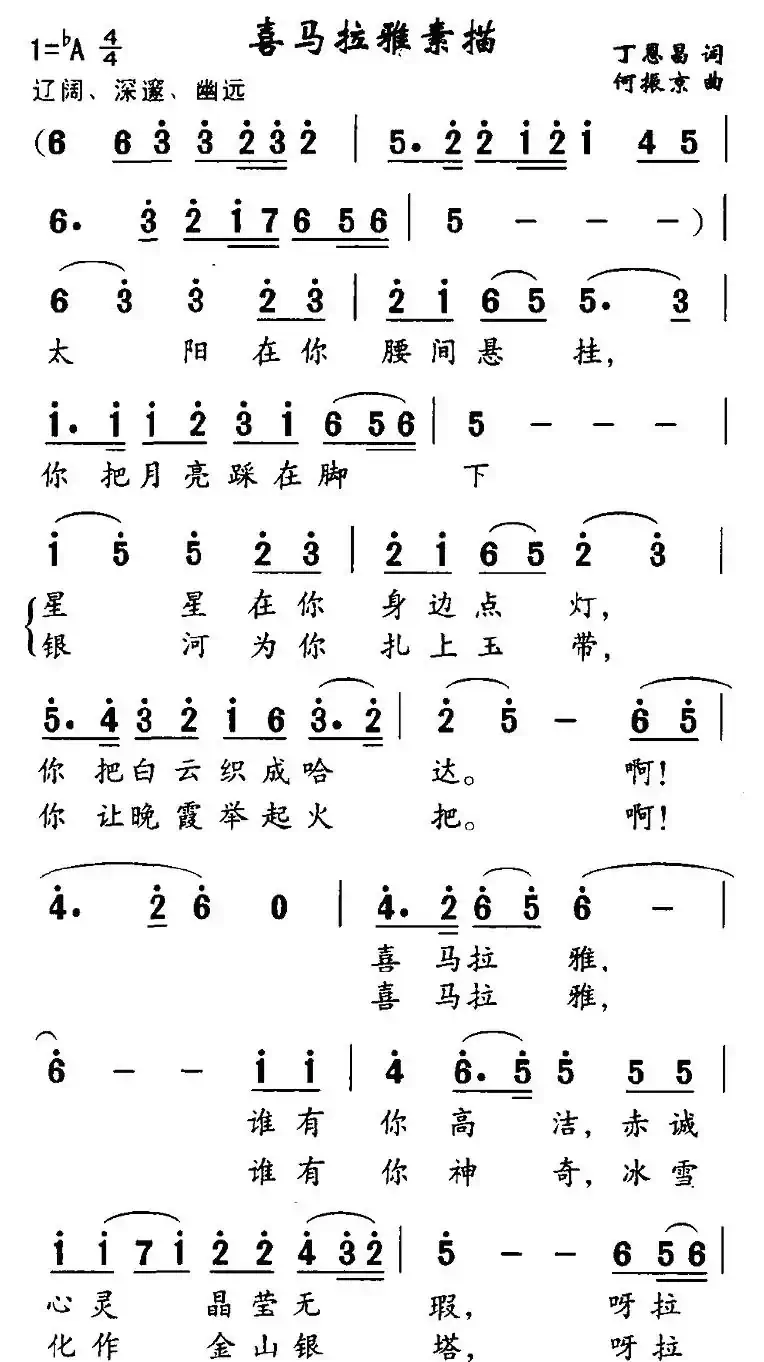 喜马拉雅素描
1=♭A 4/4
丁恩昌 词
何振京 曲
辽阔、深邃、幽远
(6 6 3̇ 3̇ 2̇ 3̇ 2̇ | 5. 2̇ 2̇ 1̇ 2̇ 1̇ 4 5 |
6. 3̇ 2̇ 1̇ 7 6 5 6 | 5 - - - ) |
6 3̇ 3̇ 2̇ 3̇ | 2̇ 1̇ 6 5 5. 3 |
太 阳 在 你 腰 间 悬 挂,
1̇. 1̇ 1̇ 2̇ 3̇ 1̇ 6 5 6 | 5 - - - |
你 把 月 亮 踩 在 脚 下
1̇ 5̇ 5̇ 2̇ 3̇ | 2̇ 1̇ 6 5 2̇ 3̇ |
星 星 在 你 身 边 点 灯,
银 河 为 你 扎 上 玉 带,
5̇. 4̇ 3̇ 2̇ 1̇ 6 3̇. 2̇ | 2̇ 5̇ - 6̇ 5̇ |
你 把 白 云 织 成 哈 达。 啊!
你 让 晚 霞 举 起 火 把。 啊!
4̇. 2̇ 6̇ 0 | 4̇. 2̇ 6̇ 5̇ 6̇ - |
喜 马 拉 雅,
喜 马 拉 雅,
6̇ - - 1̇ 1̇ | 4̇ 6̇. 5̇ 5̇ 5 5 |
谁 有 你 高 洁, 赤 诚
谁 有 你 神 奇, 冰 雪
1̇ 1̇ 7 1̇ 2̇ 2̇ 4̇ 3̇ 2̇ | 5̇ - - 6 5 6 |
心 灵 晶 莹 无 瑕, 呀 拉
化 作 金 山 银 塔, 呀 拉